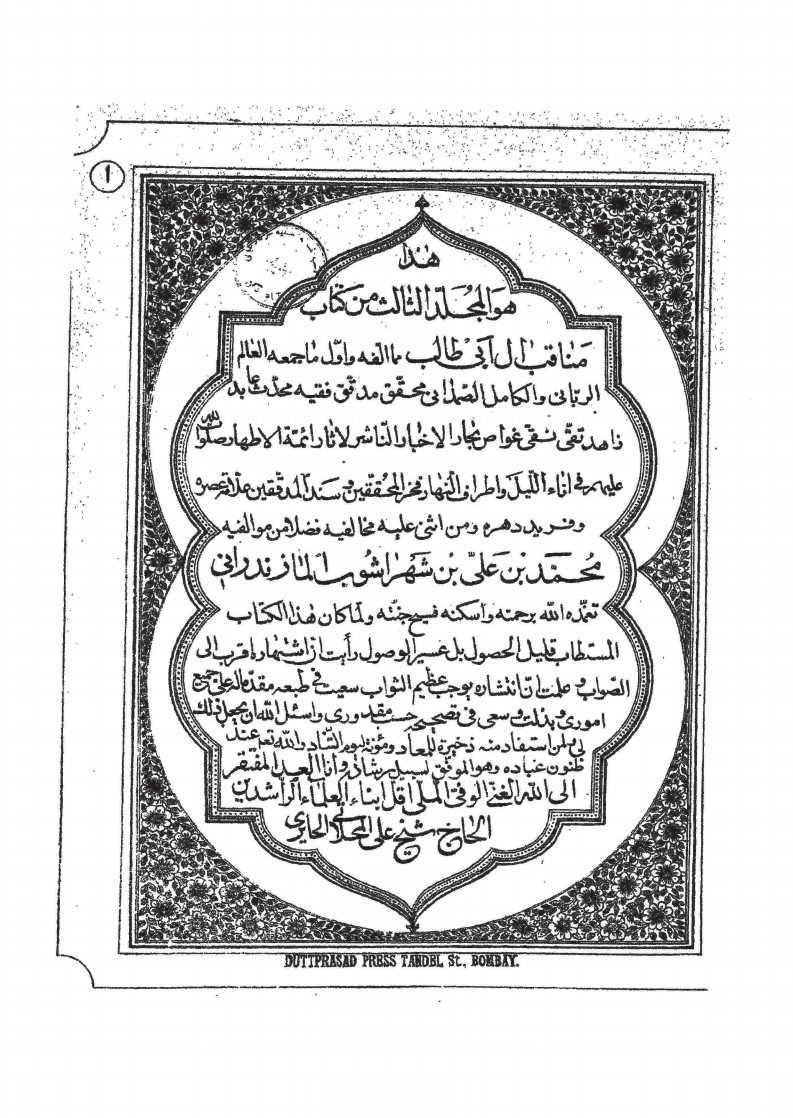 ١
هذا
هو المجلد الثالث من كتاب
مناقب ال ابي طالب مما الفه واول ما جمعه العالم
الرباني والكامل الصمداني محقق مدقق فقيه محدث عابد
زاهد تقي نقي غواص بحار الاخبار والناشر لاثار ائمة الاطهار صلوات الله
عليهم في اناء الليل واطراف النهار فخر المحققين وسند المدققين علامة عصره
وفريد دهره ومن اثنى عليه مخالفيه فضلا من موالفيه
محمد بن علي بن شهراشوب المازندراني
تغمده الله برحمته واسكنه فسيح جنته ولما كان هذا الكتاب
المستطاب قليل الحصول بل عسير الوصول رأيت ان اشتهاره اقرب الى
الصواب وعلمت ان انتشاره يوجب عظيم الثواب سعيت في طبعه مقدما له على جميع
اموري وبذلت وسعي في تصحيحه حسب مقدوري واسئل الله ان يجعل ذلك
لي ولمن استفاد منه ذخيرة للمعاد ومؤنة ليوم التناد والله تعالى عند
ظنون عباده وهو الموفق لسبيل رشاده وانا العبد المفتقر
الى الله الغني الوفي الملي اقل ابناء العلماء الراشدين
الحاج شيخ علي المحلاتي الحايري
DUTTPRASAD PRESS TANDEL St., BOMBAY.